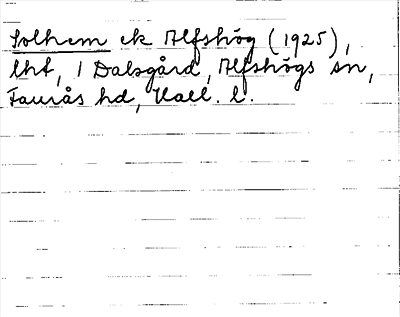 Solhem ek Alfshög (1925),
lht, 1 Dalsgård, Alfshögs sn,
Faurås hd, Hall. l.